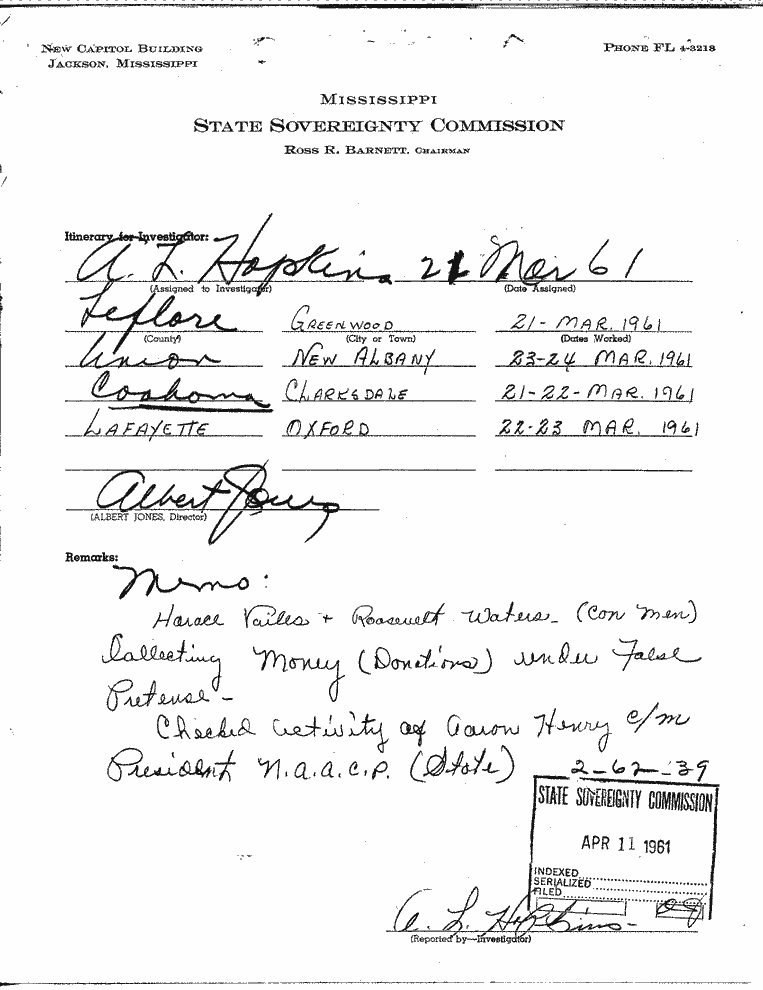 NEW CAPITOL BUILDING
JACKSON, MISSISSIPPI
PHONE FL 4-3218
MISSISSIPPI
STATE SOVEREIGNTY COMMISSION
ROSS R. BARNETT, CHAIRMAN
Itinerary for Investigator:
A. L. Hopkins 21 Mar 61
(Assigned to Investigator) (Date Assigned)
Leflore GREENWOOD 21-MAR. 1961
(County) (City or Town) (Dates Worked)
Union NEW ALBANY 23-24 MAR. 1961
Coahoma CLARKSDALE 21-22-MAR. 1961
LAFAYETTE OXFORD 22-23 MAR. 1961
Albert Jones
(ALBERT JONES, Director)
Remarks:
Memo:
Horace Vailes + Roosevelt Waters - (Con Men)
Collecting Money (Donations) under False
Pretense -
Checked activity of Aaron Henry c/m
President N.A.A.C.P. (State) 2-62-39
STATE SOVEREIGNTY COMMISSION
APR 11 1961
INDEXED
SERIALIZED
FILED
A. L. Hopkins -
(Reported by—Investigator)